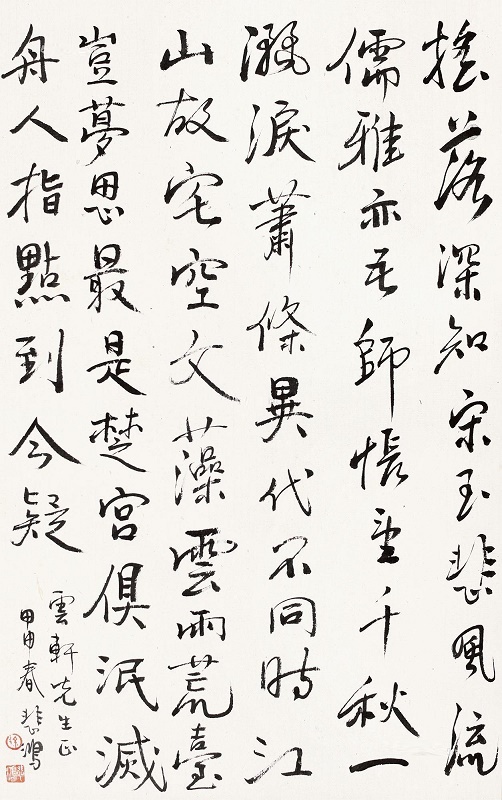 搖落深知宋玉悲風流
儒雅亦吾師悵望千秋一
灑淚蕭條異代不同時江
山故宅空文藻雲雨荒臺
豈夢思最是楚宮俱泯滅
舟人指點到今疑
雲軒先生正
甲申春悲鴻